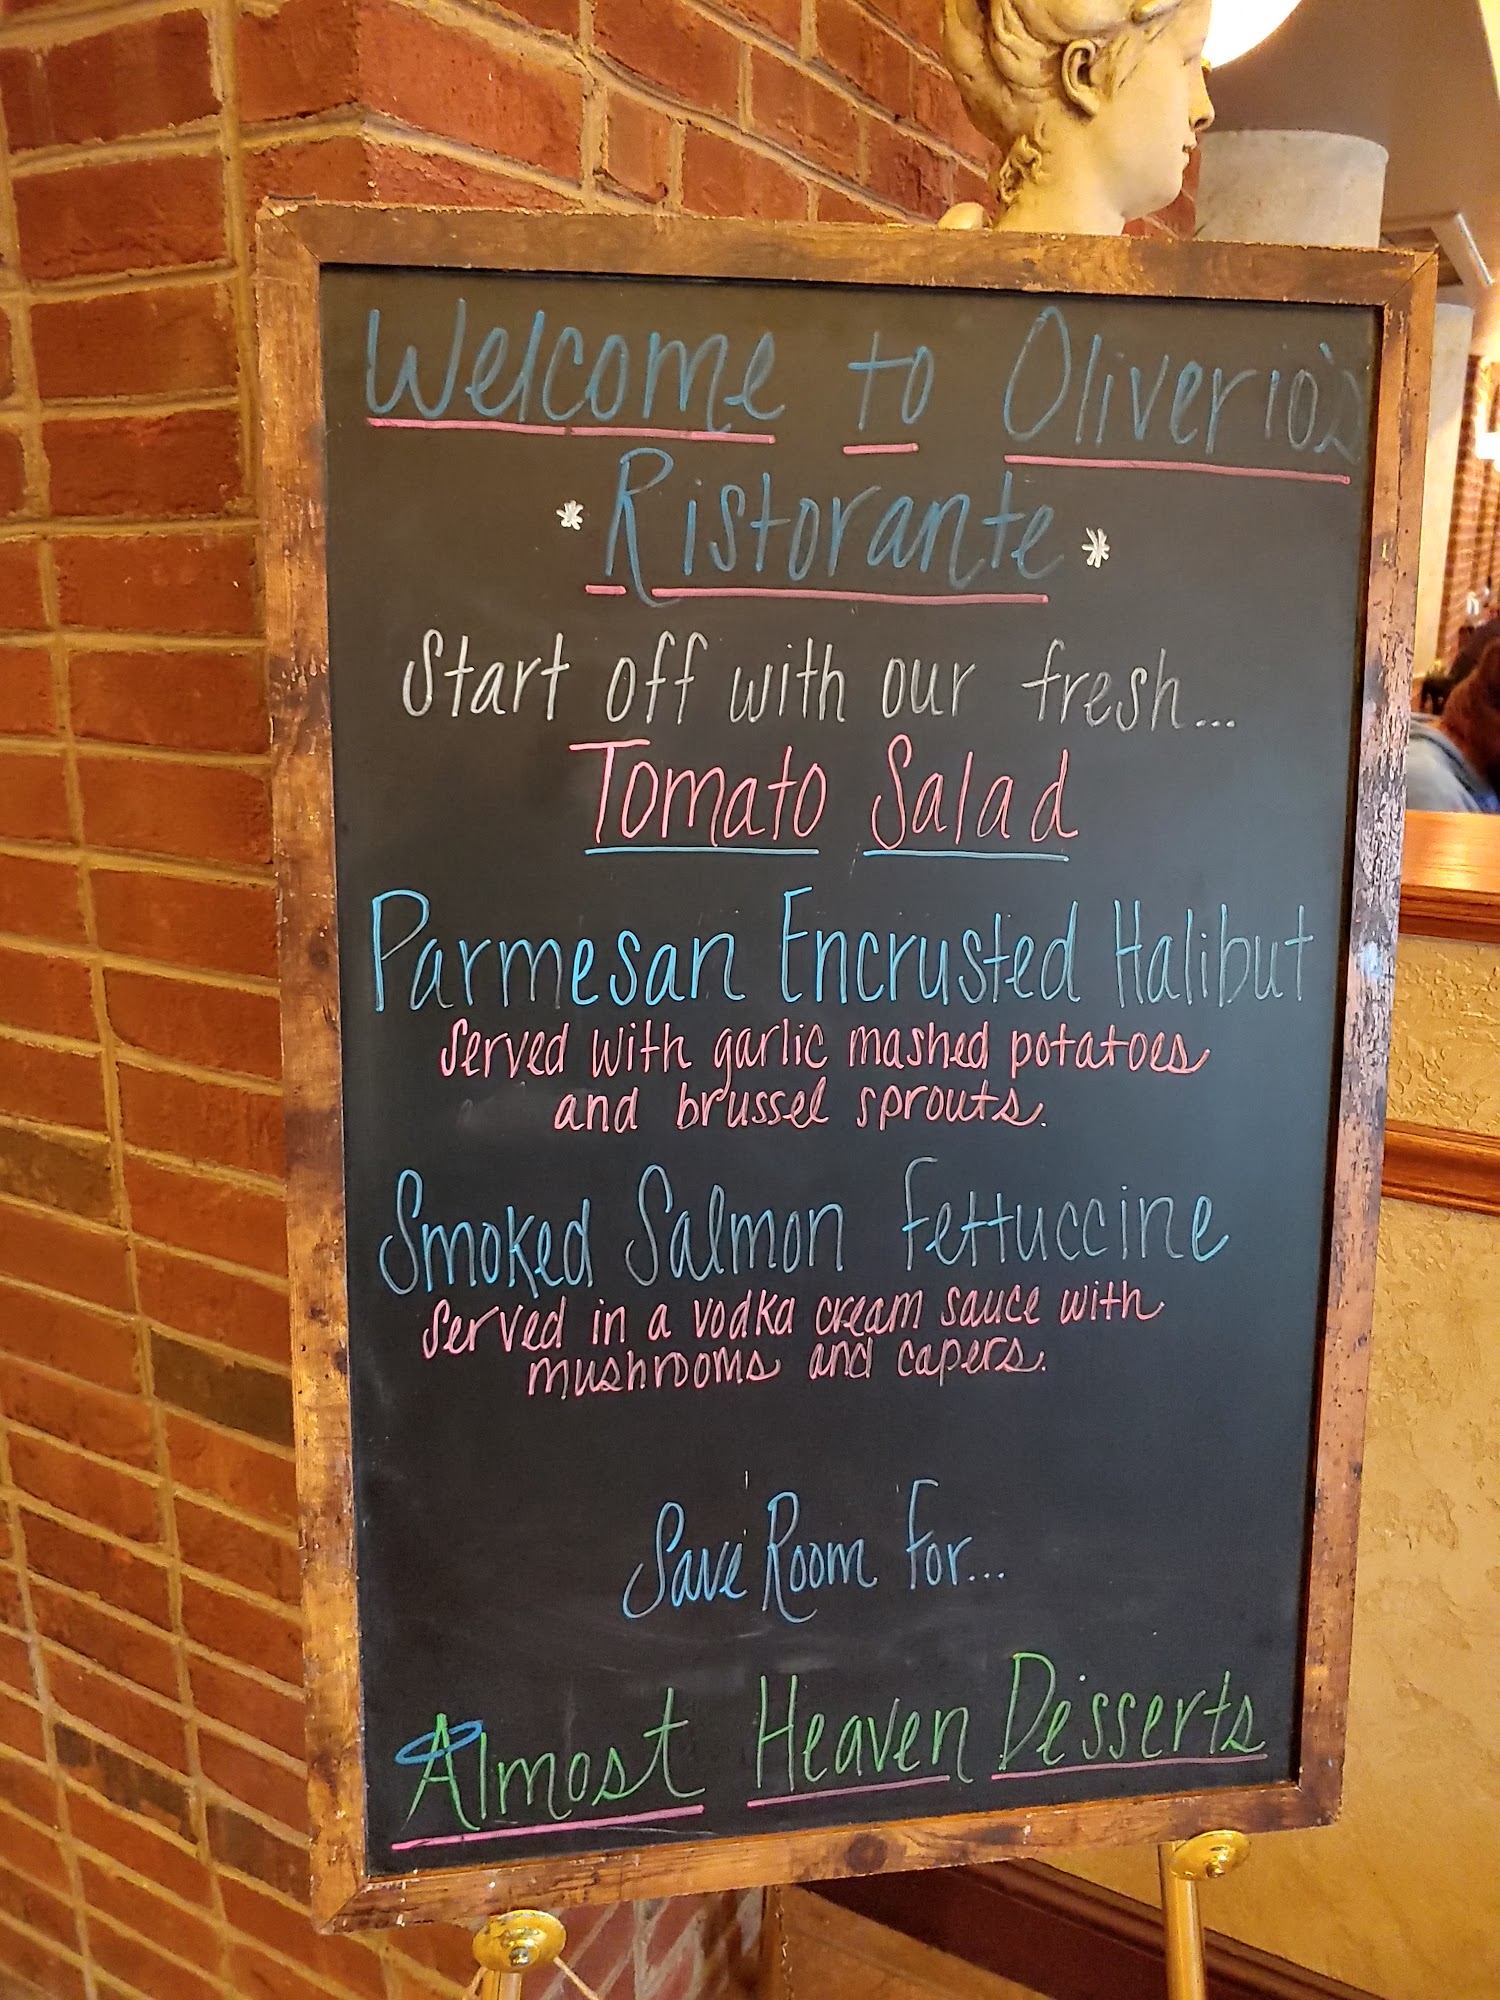 Welcome to Oliverio's
* Ristorante *
Start off with our fresh...
Tomato Salad
Parmesan Encrusted Halibut
Served with garlic mashed potatoes
and brussel sprouts.
Smoked Salmon Fettuccine
Served in a vodka cream sauce with
mushrooms and capers.
Save Room For...
Almost Heaven Desserts